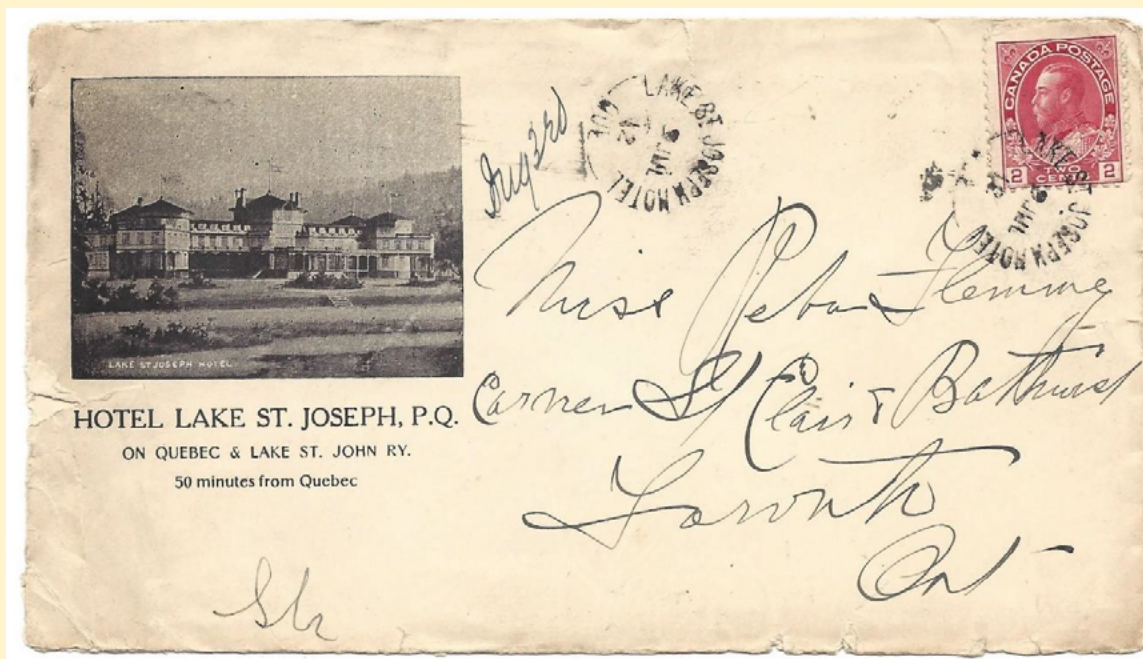 LAKE ST JOSEPH HOTEL
HOTEL LAKE ST. JOSEPH, P.Q.
ON QUEBEC & LAKE ST. JOHN RY.
50 minutes from Quebec
LAKE ST. JOSEPH HOTEL
QUE
JUL
12
CANADA POSTAGE
2 TWO CENTS 2
ST. JOSEPH HOTEL
JUL
Miss Reba Fleming
Corner St Clair & Bathurst
Toronto
Ont